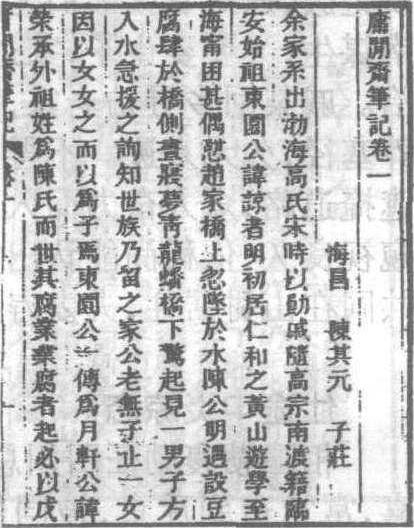 庸閒齋筆記卷一
海昌 陳其元 子莊
余家系出渤海高氏宋時以勳戚隨高宗南渡籍臨
安始祖東園公諱諒者明初居仁和之黃山遊學至
海甯困甚偶憇趙家橋上忽墜於水陳公明遇設豆
腐肆於橋側晝寢夢青龍蟠橋下驚起見一男子方
入水急援之詢知世族乃留之家公老無子止一女
因以女女之而以爲子焉東園公一傳爲月軒公諱
榮承外祖姓爲陳氏而世其腐業業腐者起必以戌